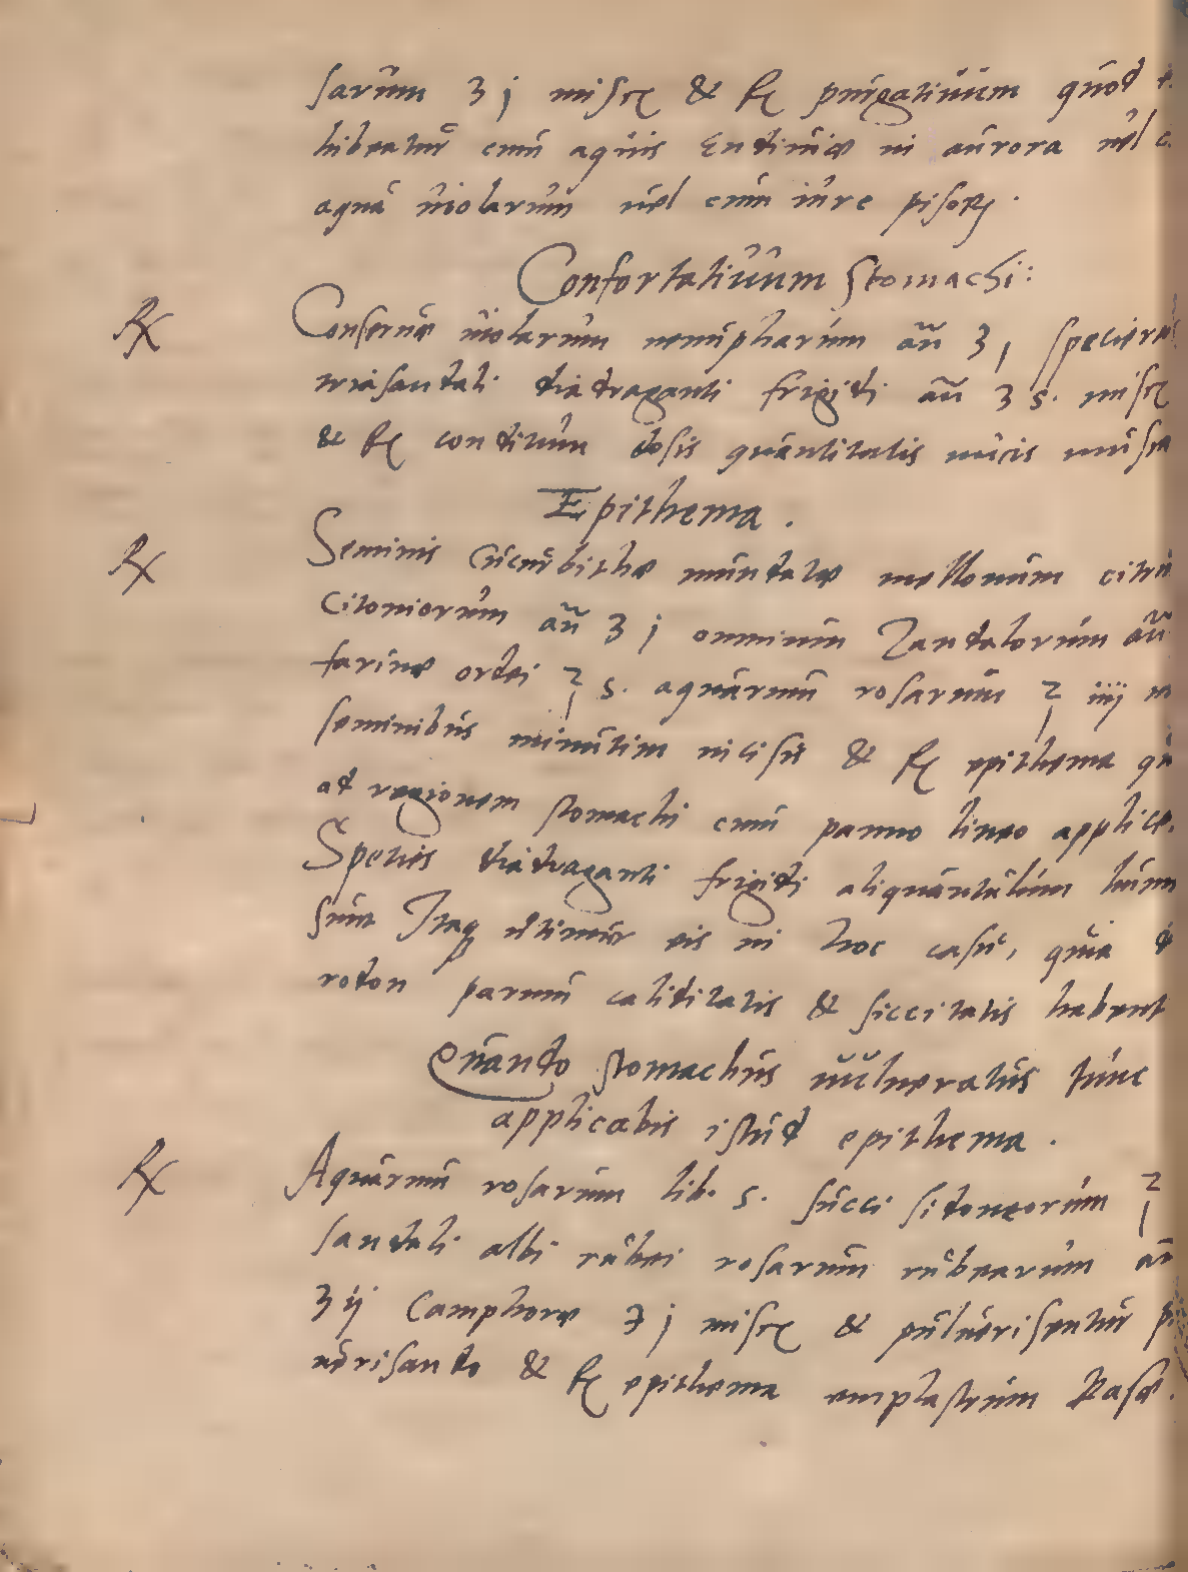 sarum ʒ j miscꝫ & fꝫ purgativum quod
hibeatur cum aquis Endiuiæ in aurora uel
aqua uiolarum uel cum iure pisorꝫ.
Confortatiuum Stomachi:
℞ Conseruæ uiolarum nenupharum añ ʒ j speciera
triasandali diadraganti frigidi añ ʒ s. miscꝫ
& fꝫ conditum dosis quantitatis nucis musca
Epithema.
℞ Seminis Cucurbithæ mundatæ mellonum citru
Citoniorum añ ʒ j omnium Zandalorum añ
farinæ ordei ℥ s. aquarum rosarum ℥ iiij
seminibus minutim incisis & fꝫ epithema
ad regionem stomachi cum panno lineo applice
Species diadraganti frigidi aliquantulum
sunt Itaqꝫ utimur eis in hoc casu, quia
rodon parum caliditatis & siccitatis habent
Quando stomachus uulneratus tunc
applicabis istud epithema.
℞ Aquarum rosarum lib. s. succi sidoneorum ℥
sandali albi rubei rosarum rubearum añ
ʒ ij Camphoræ ℈ j miscꝫ & puluerisentur
uerisando & fꝫ epithema emplastrum Rasæ.